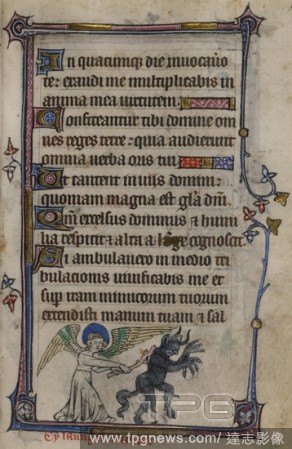 In quacumq; die inuocauero
te: exaudi me multiplicabis in
anima mea uirtutem.
Confiteantur tibi domine om
nes reges terre: quia audierunt
omnia uerba oris tui
Et cantent in uiis domini:
quoniam magna est gl̄a dn̄i.
Qm̄ excelsus dominus & humi
lia respicit & alta a longe cognoscit
Si ambulauero in medio tri
bulacionis uiuificabis me et
sup iram inimicorum tuorum
extendisti manum tuam & sal
TPG
www.tpgnews.com/ 達志影像